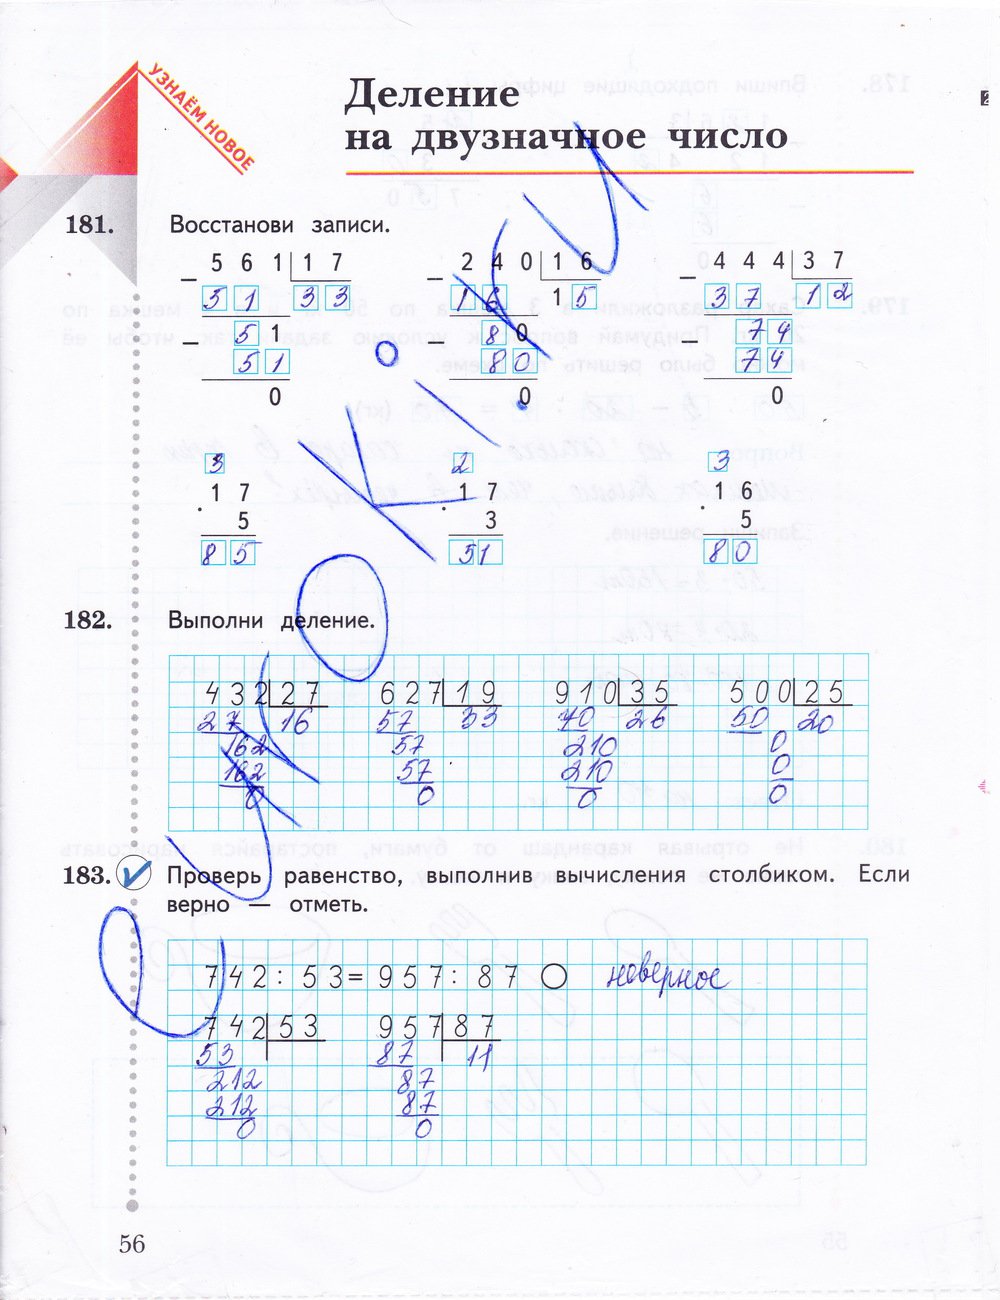 УЗНАЁМ НОВОЕ
Деление
на двузначное число
181. Восстанови записи.
561 17 240 16 444 37
51 33 16 15 37 12
51 80 74
51 80 74
0 0 0
3 2 3
17 17 16
5 3 5
85 51 80
182. Выполни деление.
432 27 627 19 910 35 500 25
27 16 57 33 70 26 50 20
162 57 210 0
162 57 210 0
0 0 0 0
183. Проверь равенство, выполнив вычисления столбиком. Если
верно — отметь.
742 : 53 = 957 : 87 неверное
742 53 957 87
53 87 11
212 87
212 87
0 0
56